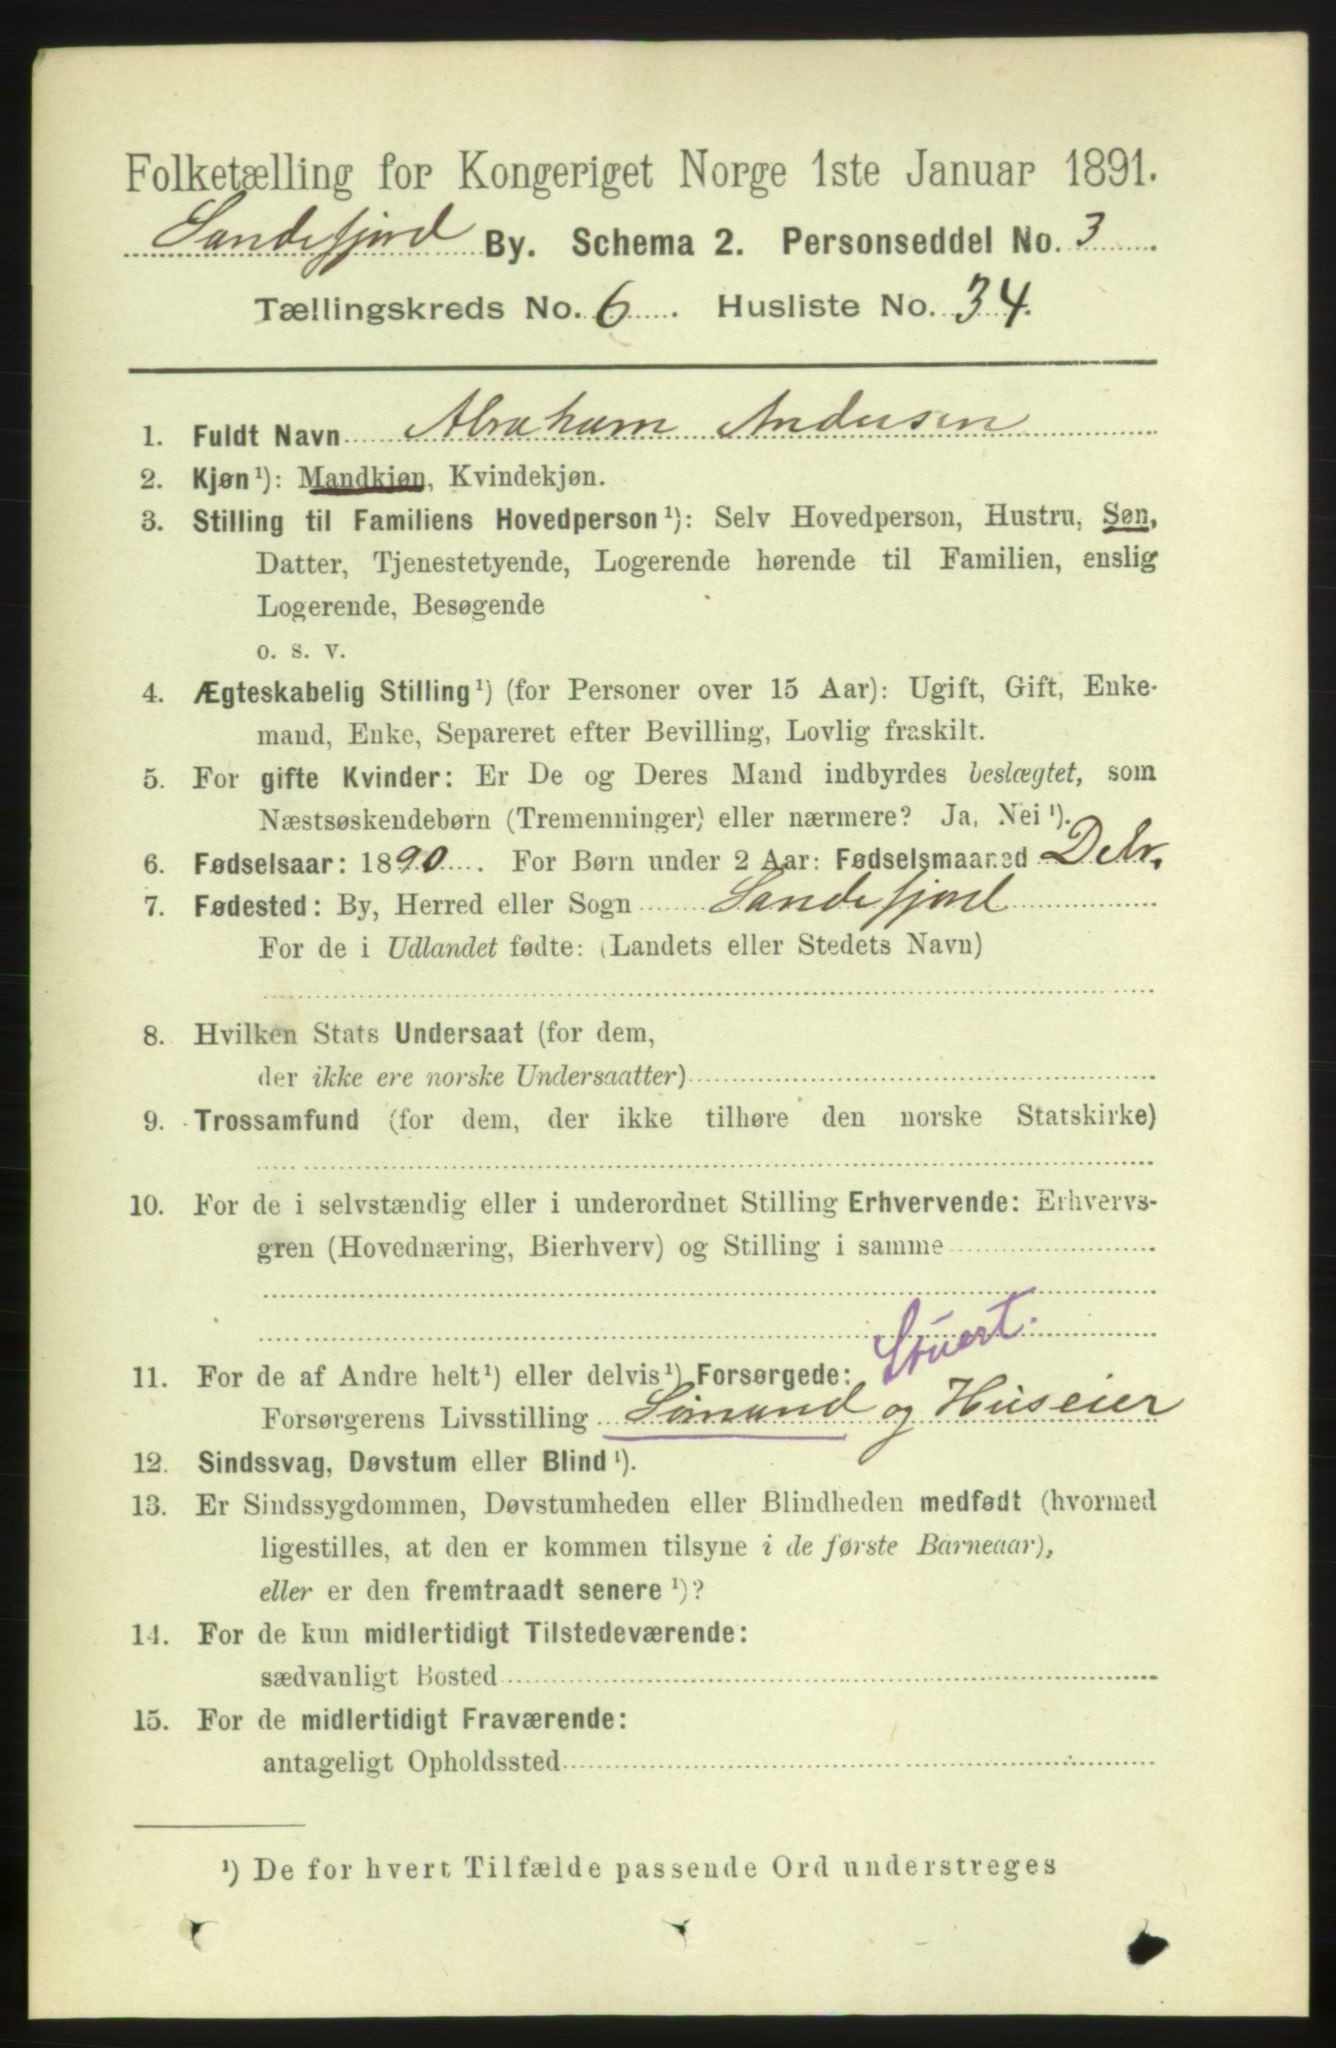 Folketælling for Kongeriget Norge 1ste Januar 1891.
Sandefjord By. Schema 2. Personseddel No. 3
Tællingskreds No. 6 . Husliste No. 34.
1. Fuldt Navn Abraham Andersen
2. Kjøn¹): Mandkjøn, Kvindekjøn.
3. Stilling til Familiens Hovedperson¹): Selv Hovedperson, Hustru, Søn,
Datter, Tjenestetyende, Logerende hørende til Familien, enslig
Logerende, Besøgende
o. s. v.
4. Ægteskabelig Stilling¹) (for Personer over 15 Aar): Ugift, Gift, Enke-
mand, Enke, Separeret efter Bevilling, Lovlig fraskilt.
5. For gifte Kvinder: Er De og Deres Mand indbyrdes beslægtet, som
Næstsøskendebørn (Tremenninger) eller nærmere? Ja, Nei¹).
6. Fødselsaar: 1890. For Børn under 2 Aar: Fødselsmaaned Debr.
7. Fødested: By, Herred eller Sogn Sandefjord
For de i Udlandet fødte: (Landets eller Stedets Navn)
8. Hvilken Stats Undersaat (for dem,
der ikke ere norske Undersaatter)
9. Trossamfund (for dem, der ikke tilhøre den norske Statskirke)
10. For de i selvstændig eller i underordnet Stilling Erhvervende: Erhvervs-
gren (Hovednæring, Bierhverv) og Stilling i samme
Stuert.
11. For de af Andre helt¹) eller delvis¹) Forsørgede:
Forsørgerens Livsstilling Sømand og Huseier
12. Sindssvag, Døvstum eller Blind¹).
13. Er Sindssygdommen, Døvstumheden eller Blindheden medfødt (hvormed
ligestilles, at den er kommen tilsyne i de første Barneaar),
eller er den fremtraadt senere¹)?
14. For de kun midlertidigt Tilstedeværende:
sædvanligt Bosted
15. For de midlertidigt Fraværende:
antageligt Opholdssted
¹) De for hvert Tilfælde passende Ord understreges